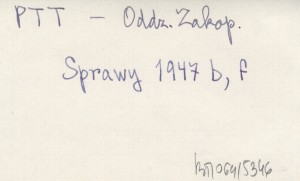 PTT – Oddz. Zakop.
Sprawy 1947 b, f
BTI064/5346